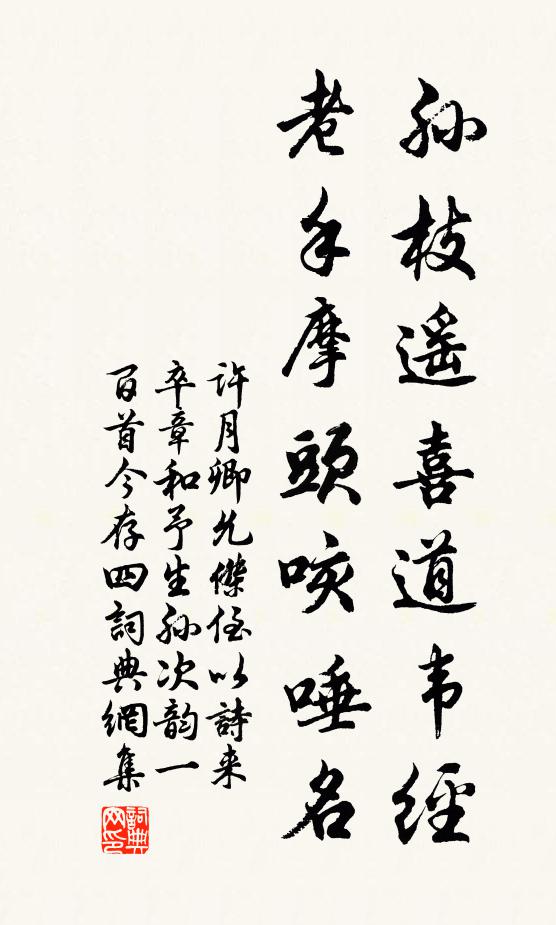 孙枝遥喜道韦經
老手摩頭咳唾名
許月卿允傑侄以詩来
卒章和予生孙次韵一
百首今存四詞典網集
詞典網印